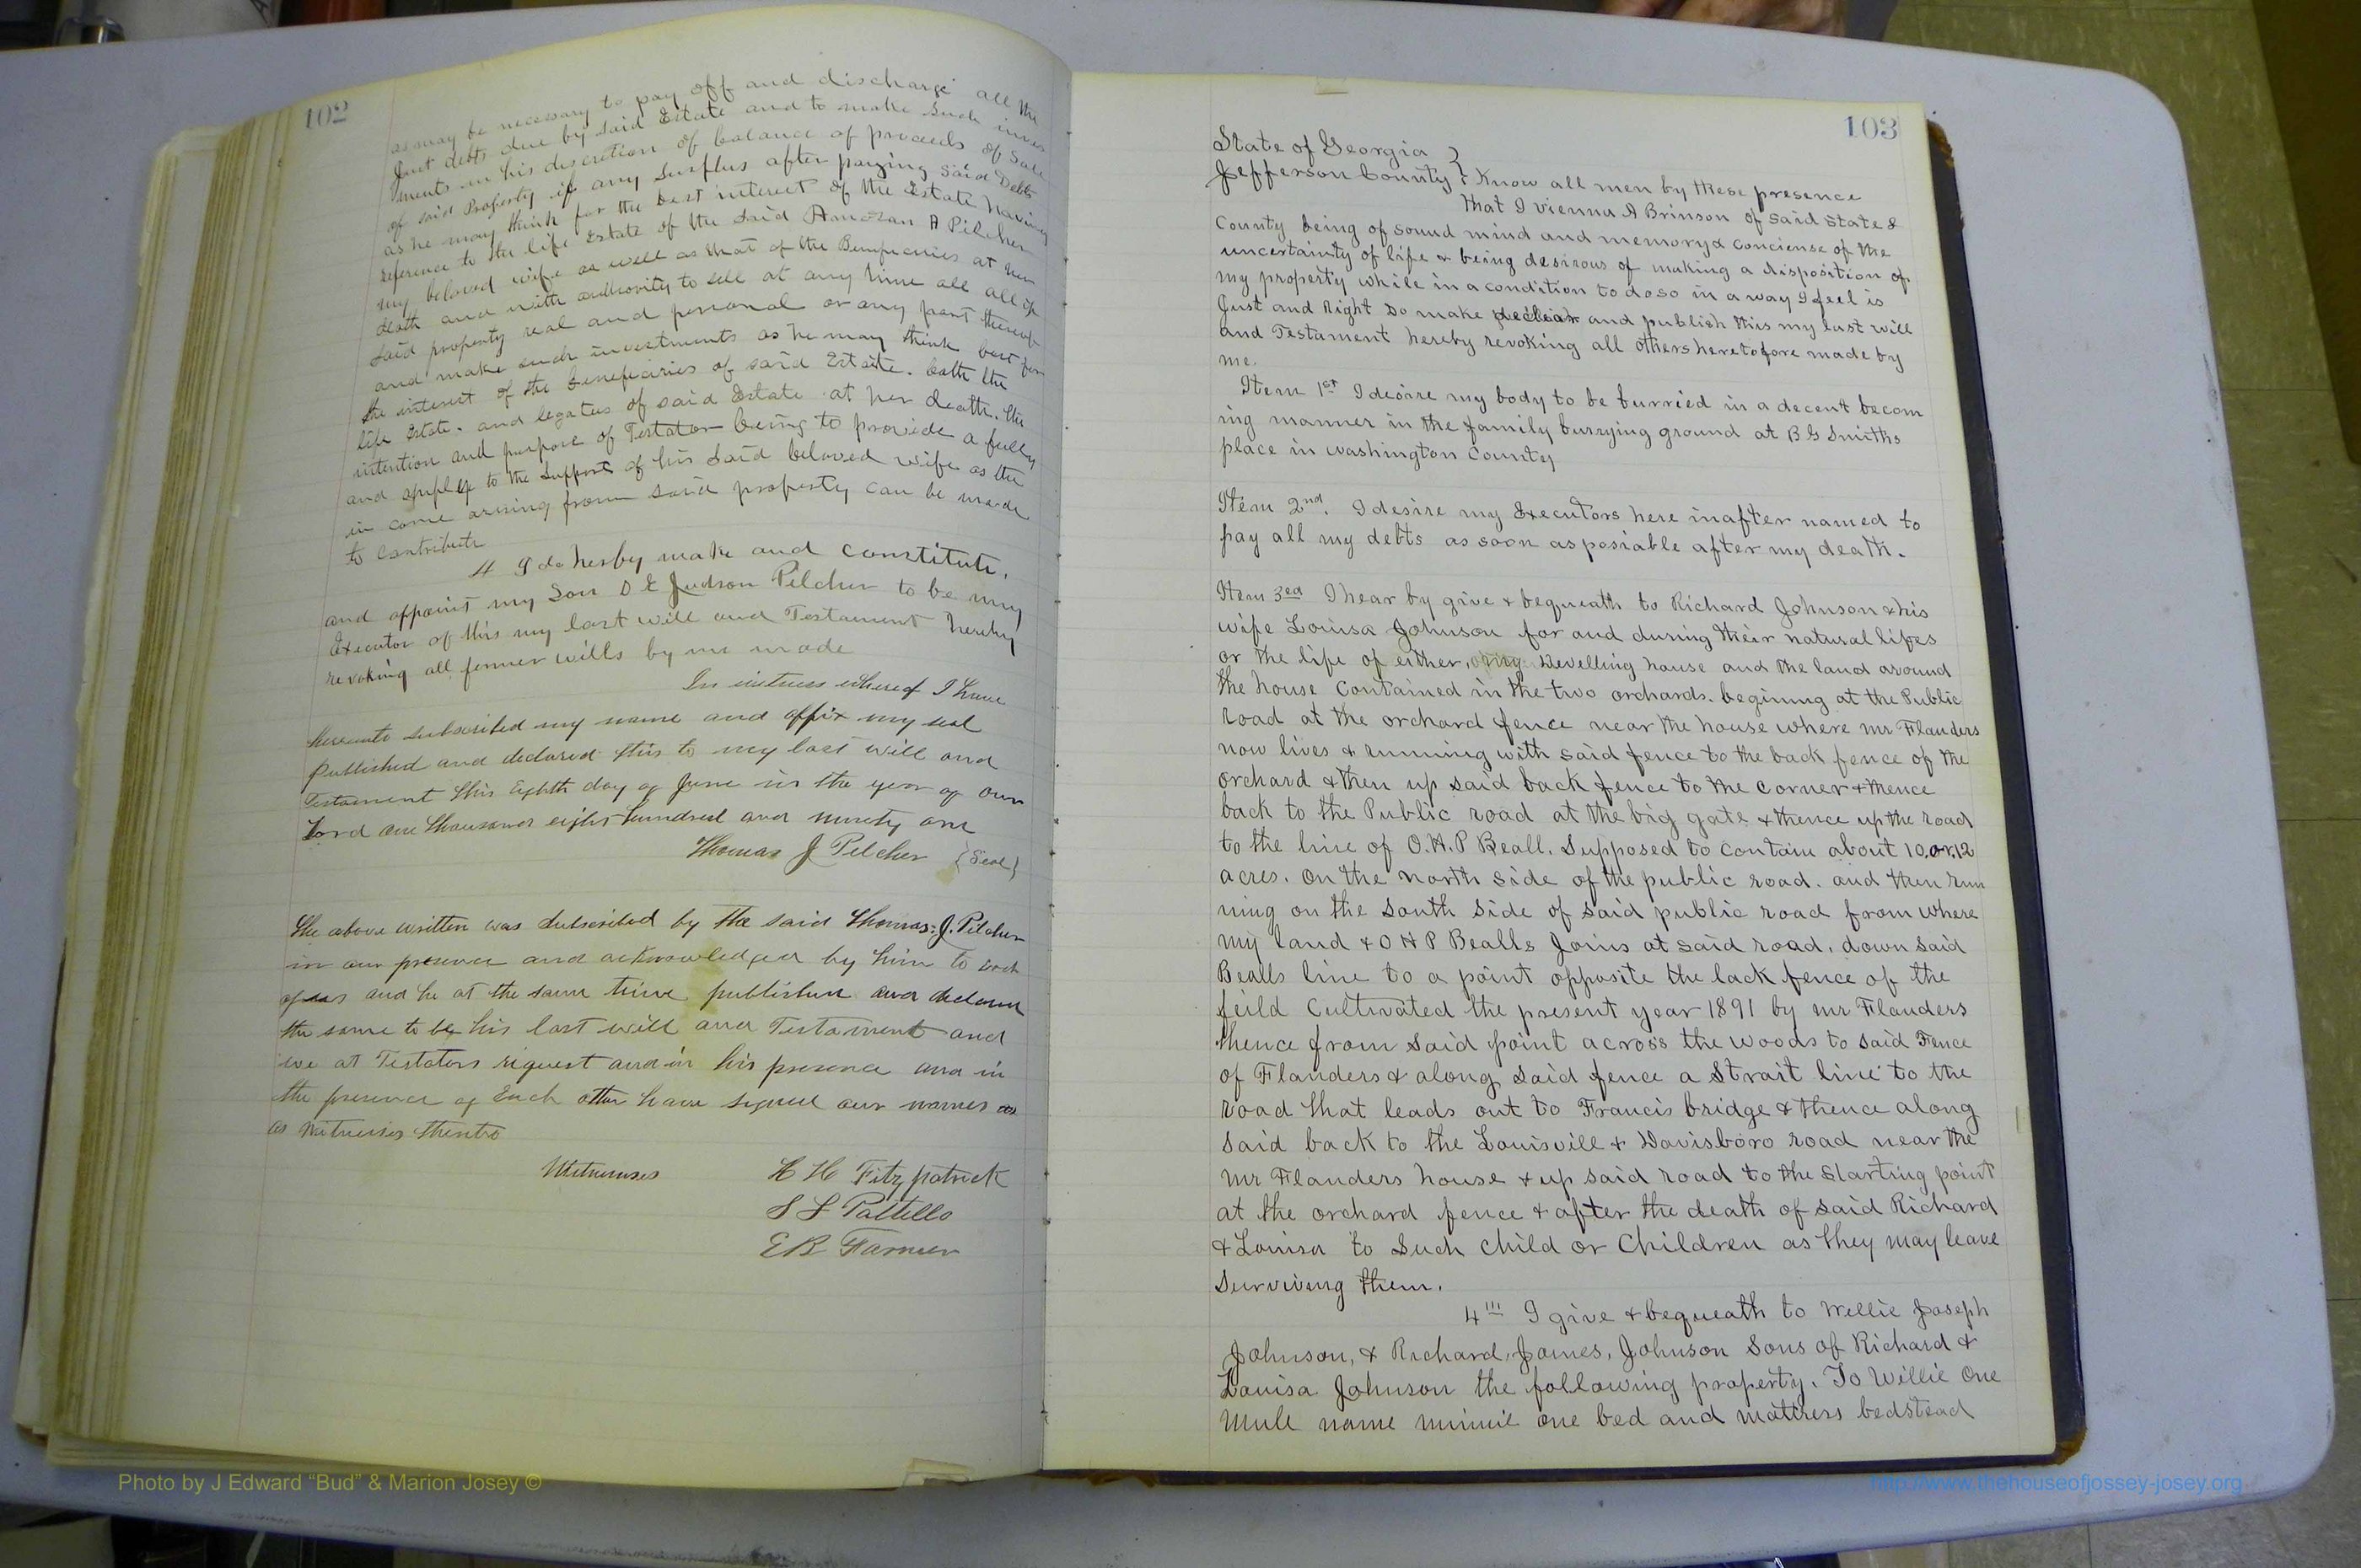 102
as may be necessary to pay off and discharge all the
Just debts due by said Estate and to make such invest
ments in his discretion of balance of proceeds of Sale
of said Property if any Surplus after paying said Debts
as he may think for the best interest of the Estate having
reference to the life Estate of the said A Pilcher
my beloved wife as well as that of the at her
death and with authority to sell at any time all all of
said property real and personal or any part thereof
and make such investments as he may think best for
the interest of the beneficiaries of said Estate. both the
life Estate. and legatees of said Estate at her death. the
intention and purpose of Testator being to provide a fully
and to the Support of his said beloved wife as the
in come arising from said property can be made
to contribute
4 I do hereby make and constitute.
and appoint my Son D E Judson Pilcher to be my
Executor of this my last will and Testament hereby
revoking all former wills by me made
In witness whereof I have
hereunto subscribed my name and affix my seal
Published and declared this to my last will and
Testament this Eighth day of June in the year of our
Lord one thousand eight hundred and ninety one
Thomas J Pilcher {Seal}
The above written was subscribed by the said Thomas. J. Pilcher
in our presence and acknowledged by him to Each
of us and he at the same time published and declared
the same to be his last will and Testament and
we at Testators request and in his presence and in
the presence of Each other have signed our names as
as Witnesses thereto
Witnesses H H Fitzpatrick
S L Pattello
E R Farmer
103
State of Georgia }
Jefferson County } Know all men by these presence
that I Vienna A Brinson of said State &
County being of sound mind and memory & conciense of the
uncertainty of life & being desirous of making a disposition of
my property while in a condition to do so in a way I feel is
Just and Right Do make and publish this my last will
and Testament hereby revoking all others heretofore made by
me.
Item 1st I desire my body to be burried in a decent becom
ing manner in the family burrying ground at B G Smiths
place in Washington County
Item 2nd. I desire my Executors here inafter named to
pay all my debts as soon as posiable after my death.
Item 3ed I hear by give & bequeath to Richard Johnson & his
wife Louisa Johnson for and during their natural lifes
or the life of either, my Dwelling house and the land around
the house Contained in the two orchards. begining at the Public
road at the orchard fence near the house where mr Flanders
now lives & running with said fence to the back fence of the
orchard & then up said back fence to the corner & thence
back to the Public road at the big gate & thence up the road
to the line of O. H. P Beall. Supposed to contain about 10. or. 12
acres. on the north side of the public road. and then run
ning on the South Side of said public road from where
my land & O H P Bealls Joins at said road. down said
Bealls line to a point opposite the back fence of the
feild Cultivated the present year 1891 by mr Flanders
thence from said point across the woods to said Fence
of Flanders & along said fence a Strait line to the
road that leads out to Francis bridge & thence along
said back to the Louisvill & Davisboro road near the
mr Flanders house & up said road to the Starting point
at the orchard fence & after the death of said Richard
& Louisa to Such Child or Children as they may leave
Surviving them.
4th I give & bequeath to Willie Joseph
Johnson, & Richard, James, Johnson Sons of Richard &
Louisa Johnson the following property. To Willie One
Mule name minnie one bed and mattress bedstead
Photo by J Edward “Bud” & Marion Josey ©
http://www.thehouseofjossey-josey.org